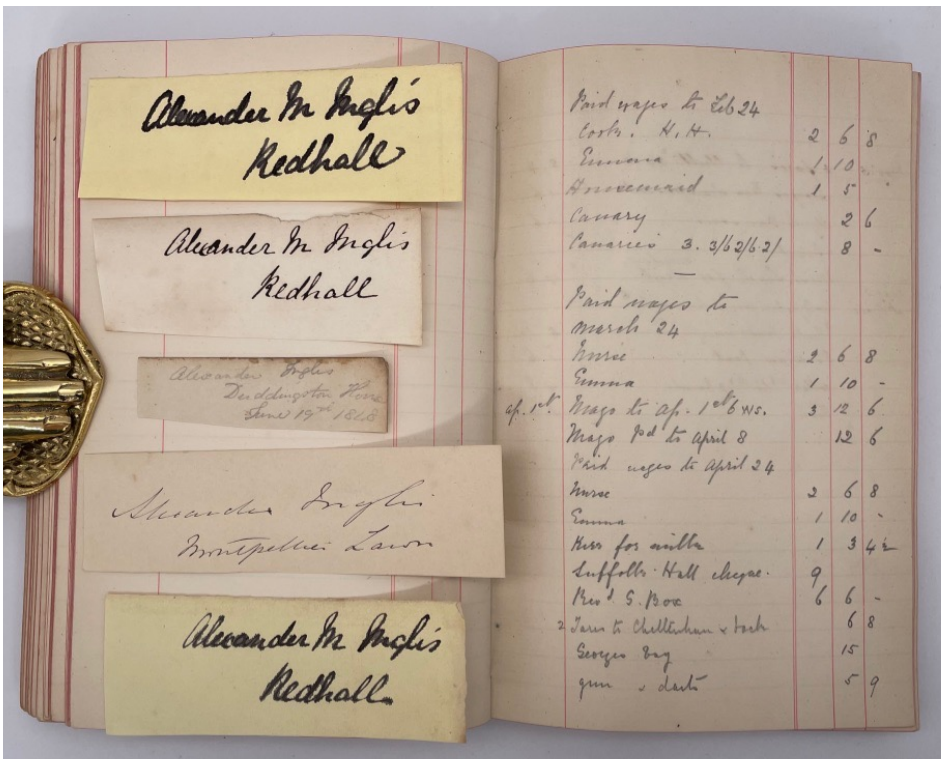 Alexander M Inglis
Redhall
Alexander M Inglis
Redhall
Alexander Inglis
Duddingston House
June 19th 1848
Alexander Inglis
Montpellier Lawn
Alexander M Inglis
Redhall
Paid wages to Feb 24
Cook. H. H. 2 6 8
Emma 1 10
Housemaid 1 5
Canary 2 6
Canaries 3. 3/6 2/6 2/ 8 -
Paid wages to
March 24
Nurse 2 6 8
Emma 1 10 -
Ap. 1st. Mags to Ap. 1st 3 12 6
Mags Pd to April 8 12 6
Paid wages to April 24
Nurse 2 6 8
Emma 1 10 -
for milk 1 3 4
Suffolk Hall cheque. 9
Revd. G. Box 6 6 -
2 to Cheltenham & back 6 8
Georges 15
gun & darts 5 9